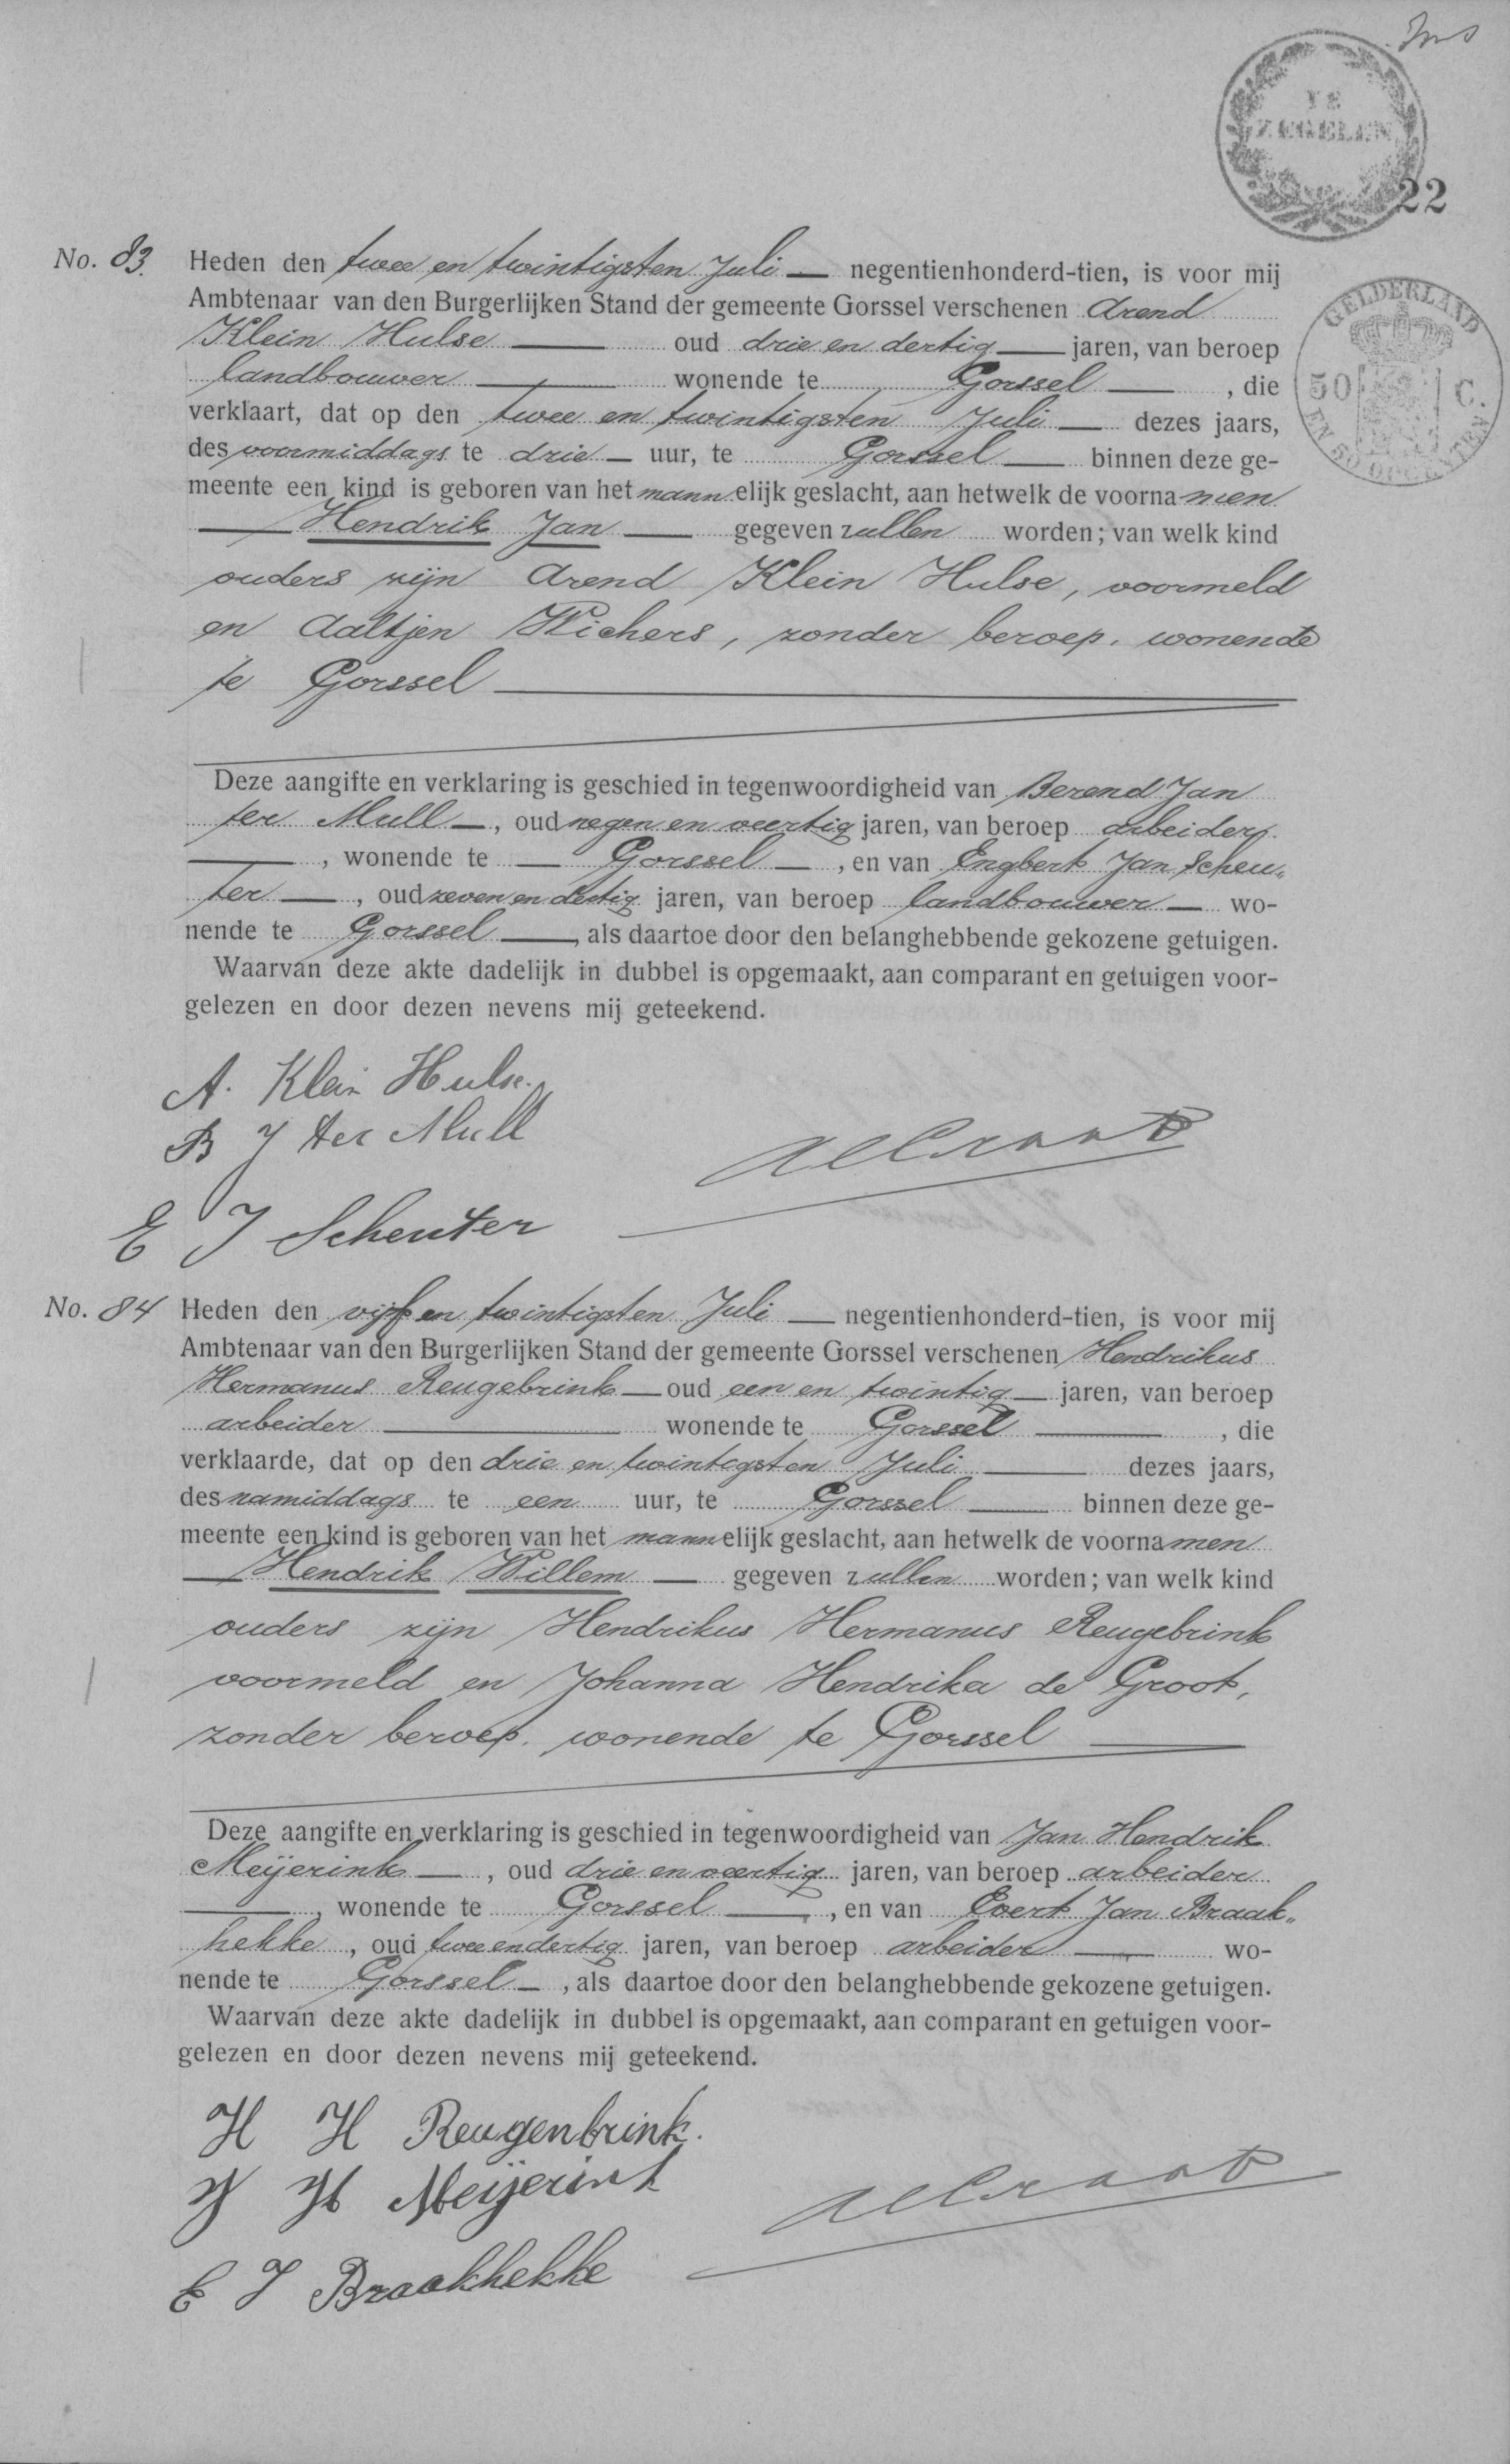 TE
ZEGELEN
22
GELDERLAND
50 C.
EN 50 OPCENTEN
No. 83. Heden den twee en twintigsten Juli — negentienhonderd-tien, is voor mij
Ambtenaar van den Burgerlijken Stand der gemeente Gorssel verschenen Arend
Klein Hulse — oud drie en dertig — jaren, van beroep
landbouwer — wonende te Gorssel — , die
verklaart, dat op den twee en twintigsten Juli — dezes jaars,
des voormiddags te drie — uur, te Gorssel — binnen deze ge-
meente een kind is geboren van het mannelijk geslacht, aan hetwelk de voornamen
— Hendrik Jan — gegeven zullen worden; van welk kind
ouders zijn Arend Klein Hulse, voormeld
en Aaltjen Wichers, zonder beroep, wonende
te Gorssel —
Deze aangifte en verklaring is geschied in tegenwoordigheid van Berend Jan
ter Mull — , oud negen en veertig jaren, van beroep arbeider
— , wonende te — Gorssel — , en van Engbert Jan Scheu„
ter — , oud zeven en dertig jaren, van beroep landbouwer — wo-
nende te Gorssel — , als daartoe door den belanghebbende gekozene getuigen.
Waarvan deze akte dadelijk in dubbel is opgemaakt, aan comparant en getuigen voor-
gelezen en door dezen nevens mij geteekend.
A. Klein Hulse.
B J ter Mull
E J Scheuter
No. 84 Heden den vijf en twintigsten Juli — negentienhonderd-tien, is voor mij
Ambtenaar van den Burgerlijken Stand der gemeente Gorssel verschenen Hendrikus
Hermanus Reugebrink — oud een en twintig — jaren, van beroep
arbeider — wonende te Gorssel — , die
verklaarde, dat op den drie en twintigsten Juli — dezes jaars,
des namiddags te een uur, te Gorssel — binnen deze ge-
meente een kind is geboren van het mannelijk geslacht, aan hetwelk de voornamen
— Hendrik Willem — gegeven zullen worden; van welk kind
ouders zijn Hendrikus Hermanus Reugebrink
voormeld en Johanna Hendrika de Groot,
zonder beroep, wonende te Gorssel —
Deze aangifte en verklaring is geschied in tegenwoordigheid van Jan Hendrik
Meijerink — , oud drie en veertig jaren, van beroep arbeider
— , wonende te Gorssel — , en van Evert Jan Braak„
hekke , oud twee en dertig jaren, van beroep arbeider — wo-
nende te Gorssel — , als daartoe door den belanghebbende gekozene getuigen.
Waarvan deze akte dadelijk in dubbel is opgemaakt, aan comparant en getuigen voor-
gelezen en door dezen nevens mij geteekend.
H H Reugenbrink.
J H Meijerink
E J Braakhekke